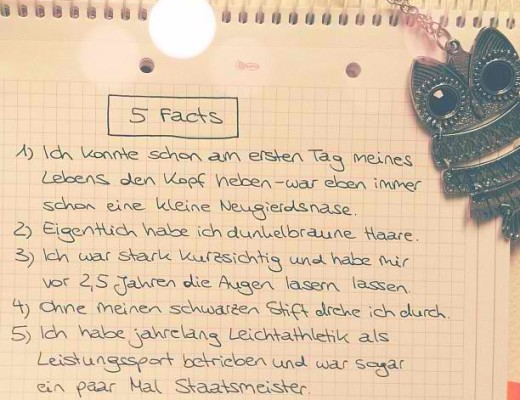 5 Facts
1) Ich konnte schon am ersten Tag meines
Lebens den Kopf heben – war eben immer
schon eine kleine Neugierdsnase.
2) Eigentlich habe ich dunkelbraune Haare.
3) Ich war stark kurzsichtig und habe mir
vor 2,5 Jahren die Augen lasern lassen.
4) Ohne meinen schwarzen Stift drehe ich durch.
5) Ich habe jahrelang Leichtathletik als
Leistungssport betrieben und war sogar
ein paar Mal Staatsmeister.